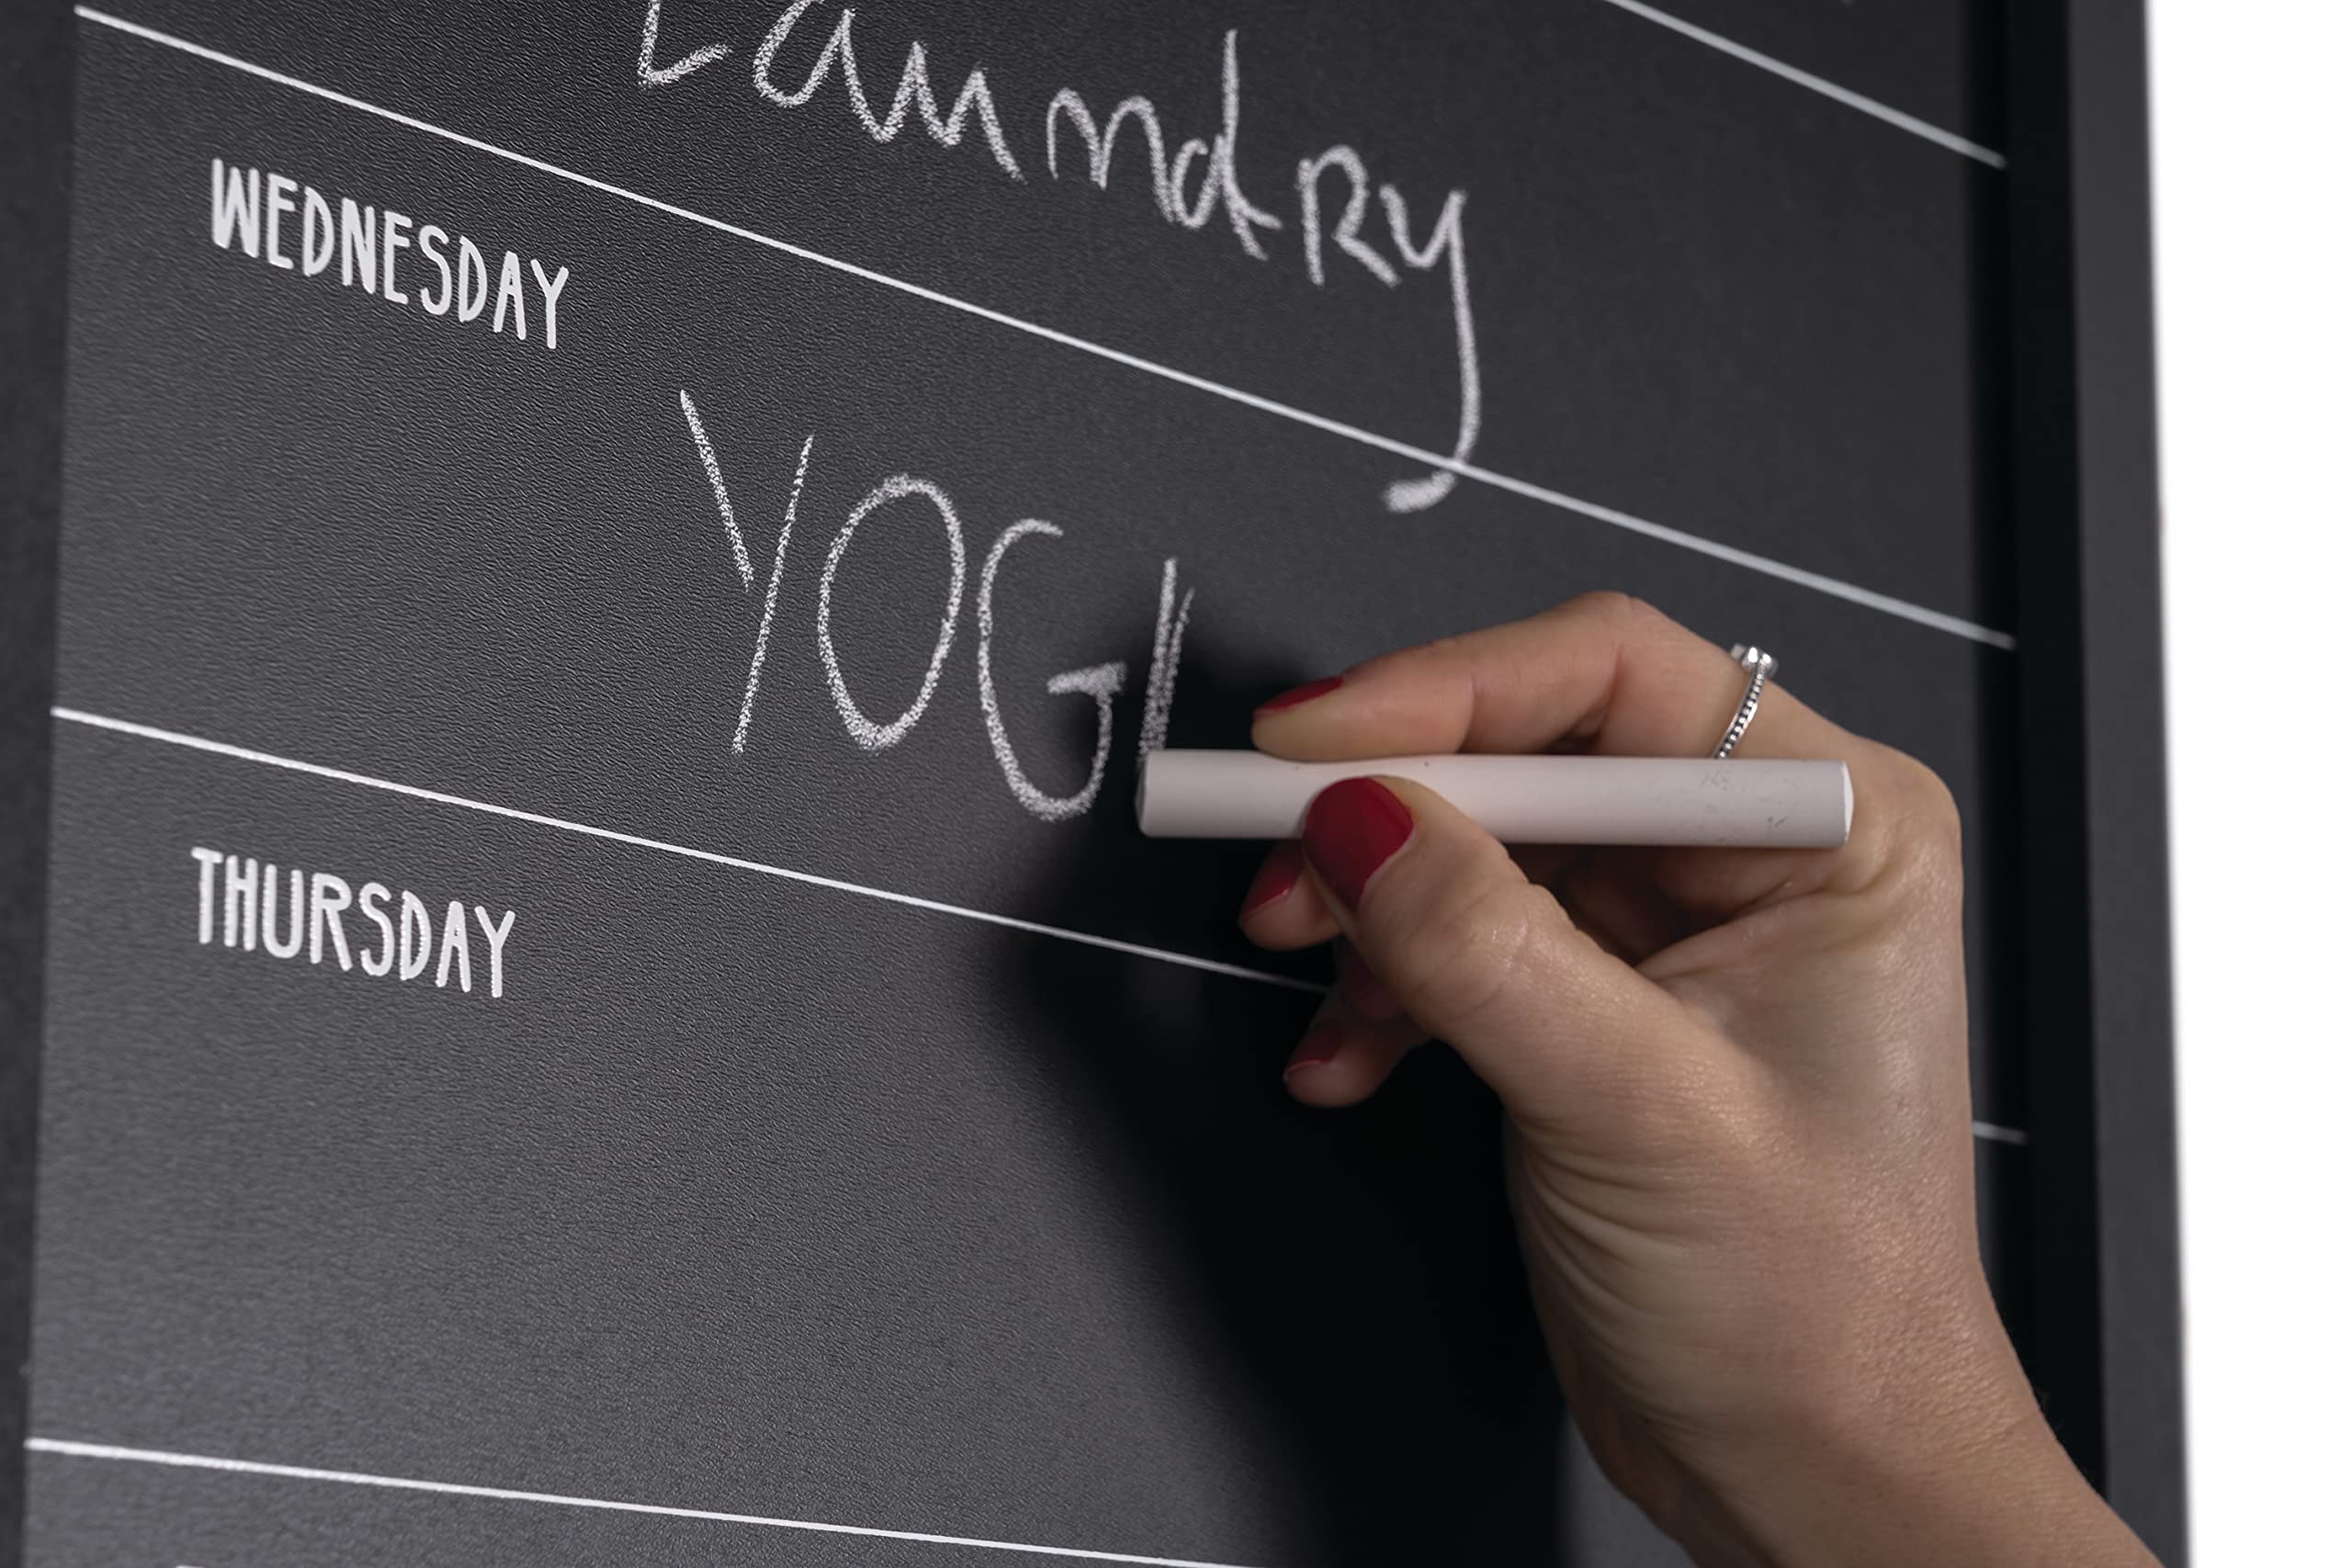 Laundry
WEDNESDAY
YOG
THURSDAY